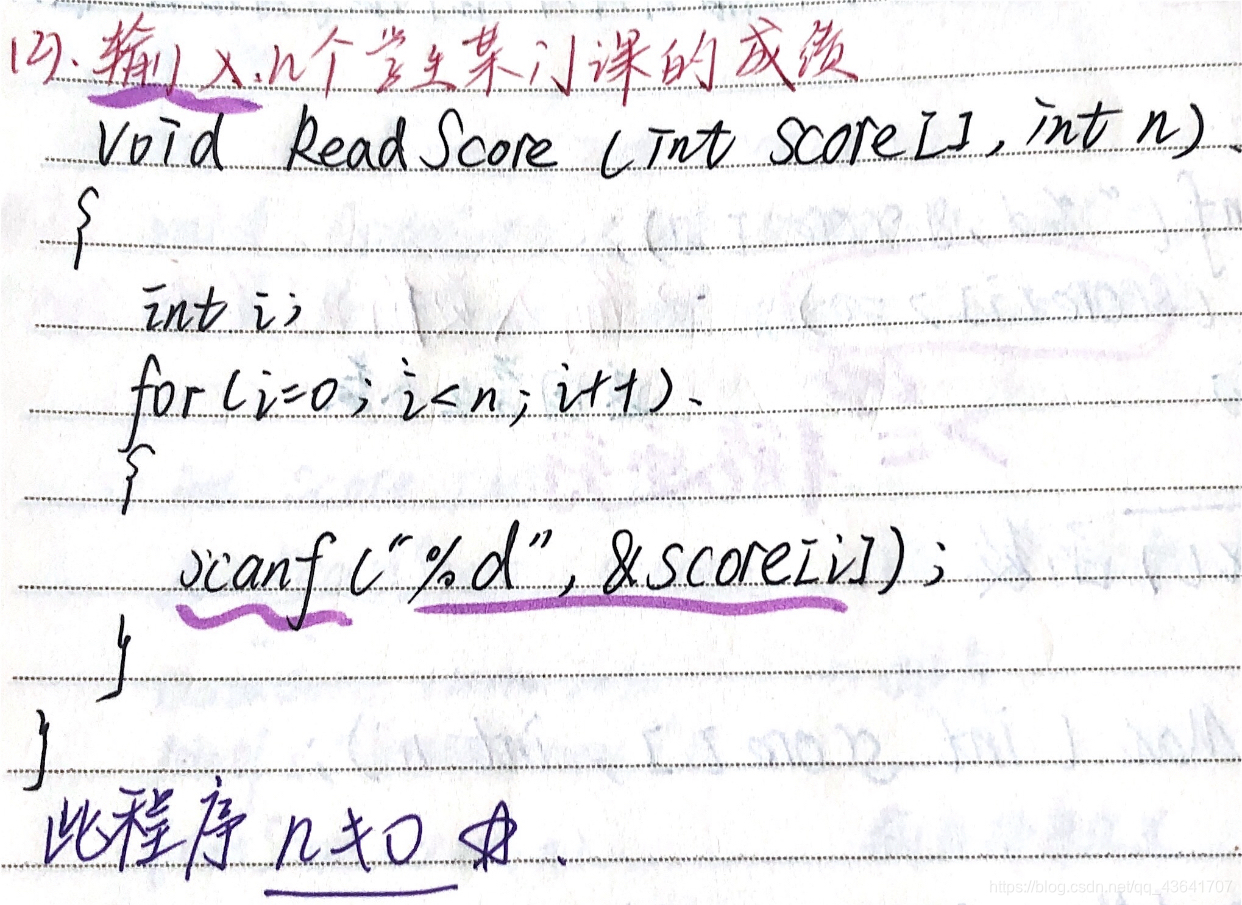 (2). 输入n个学生某门课的成绩
void ReadScore (int score[], int n)
{
int i;
for (i=0; i<n; i++)
{
scanf ("%d", &score[i]);
}
}
此程序 n≠0
https://blog.csdn.net/qq_43641707